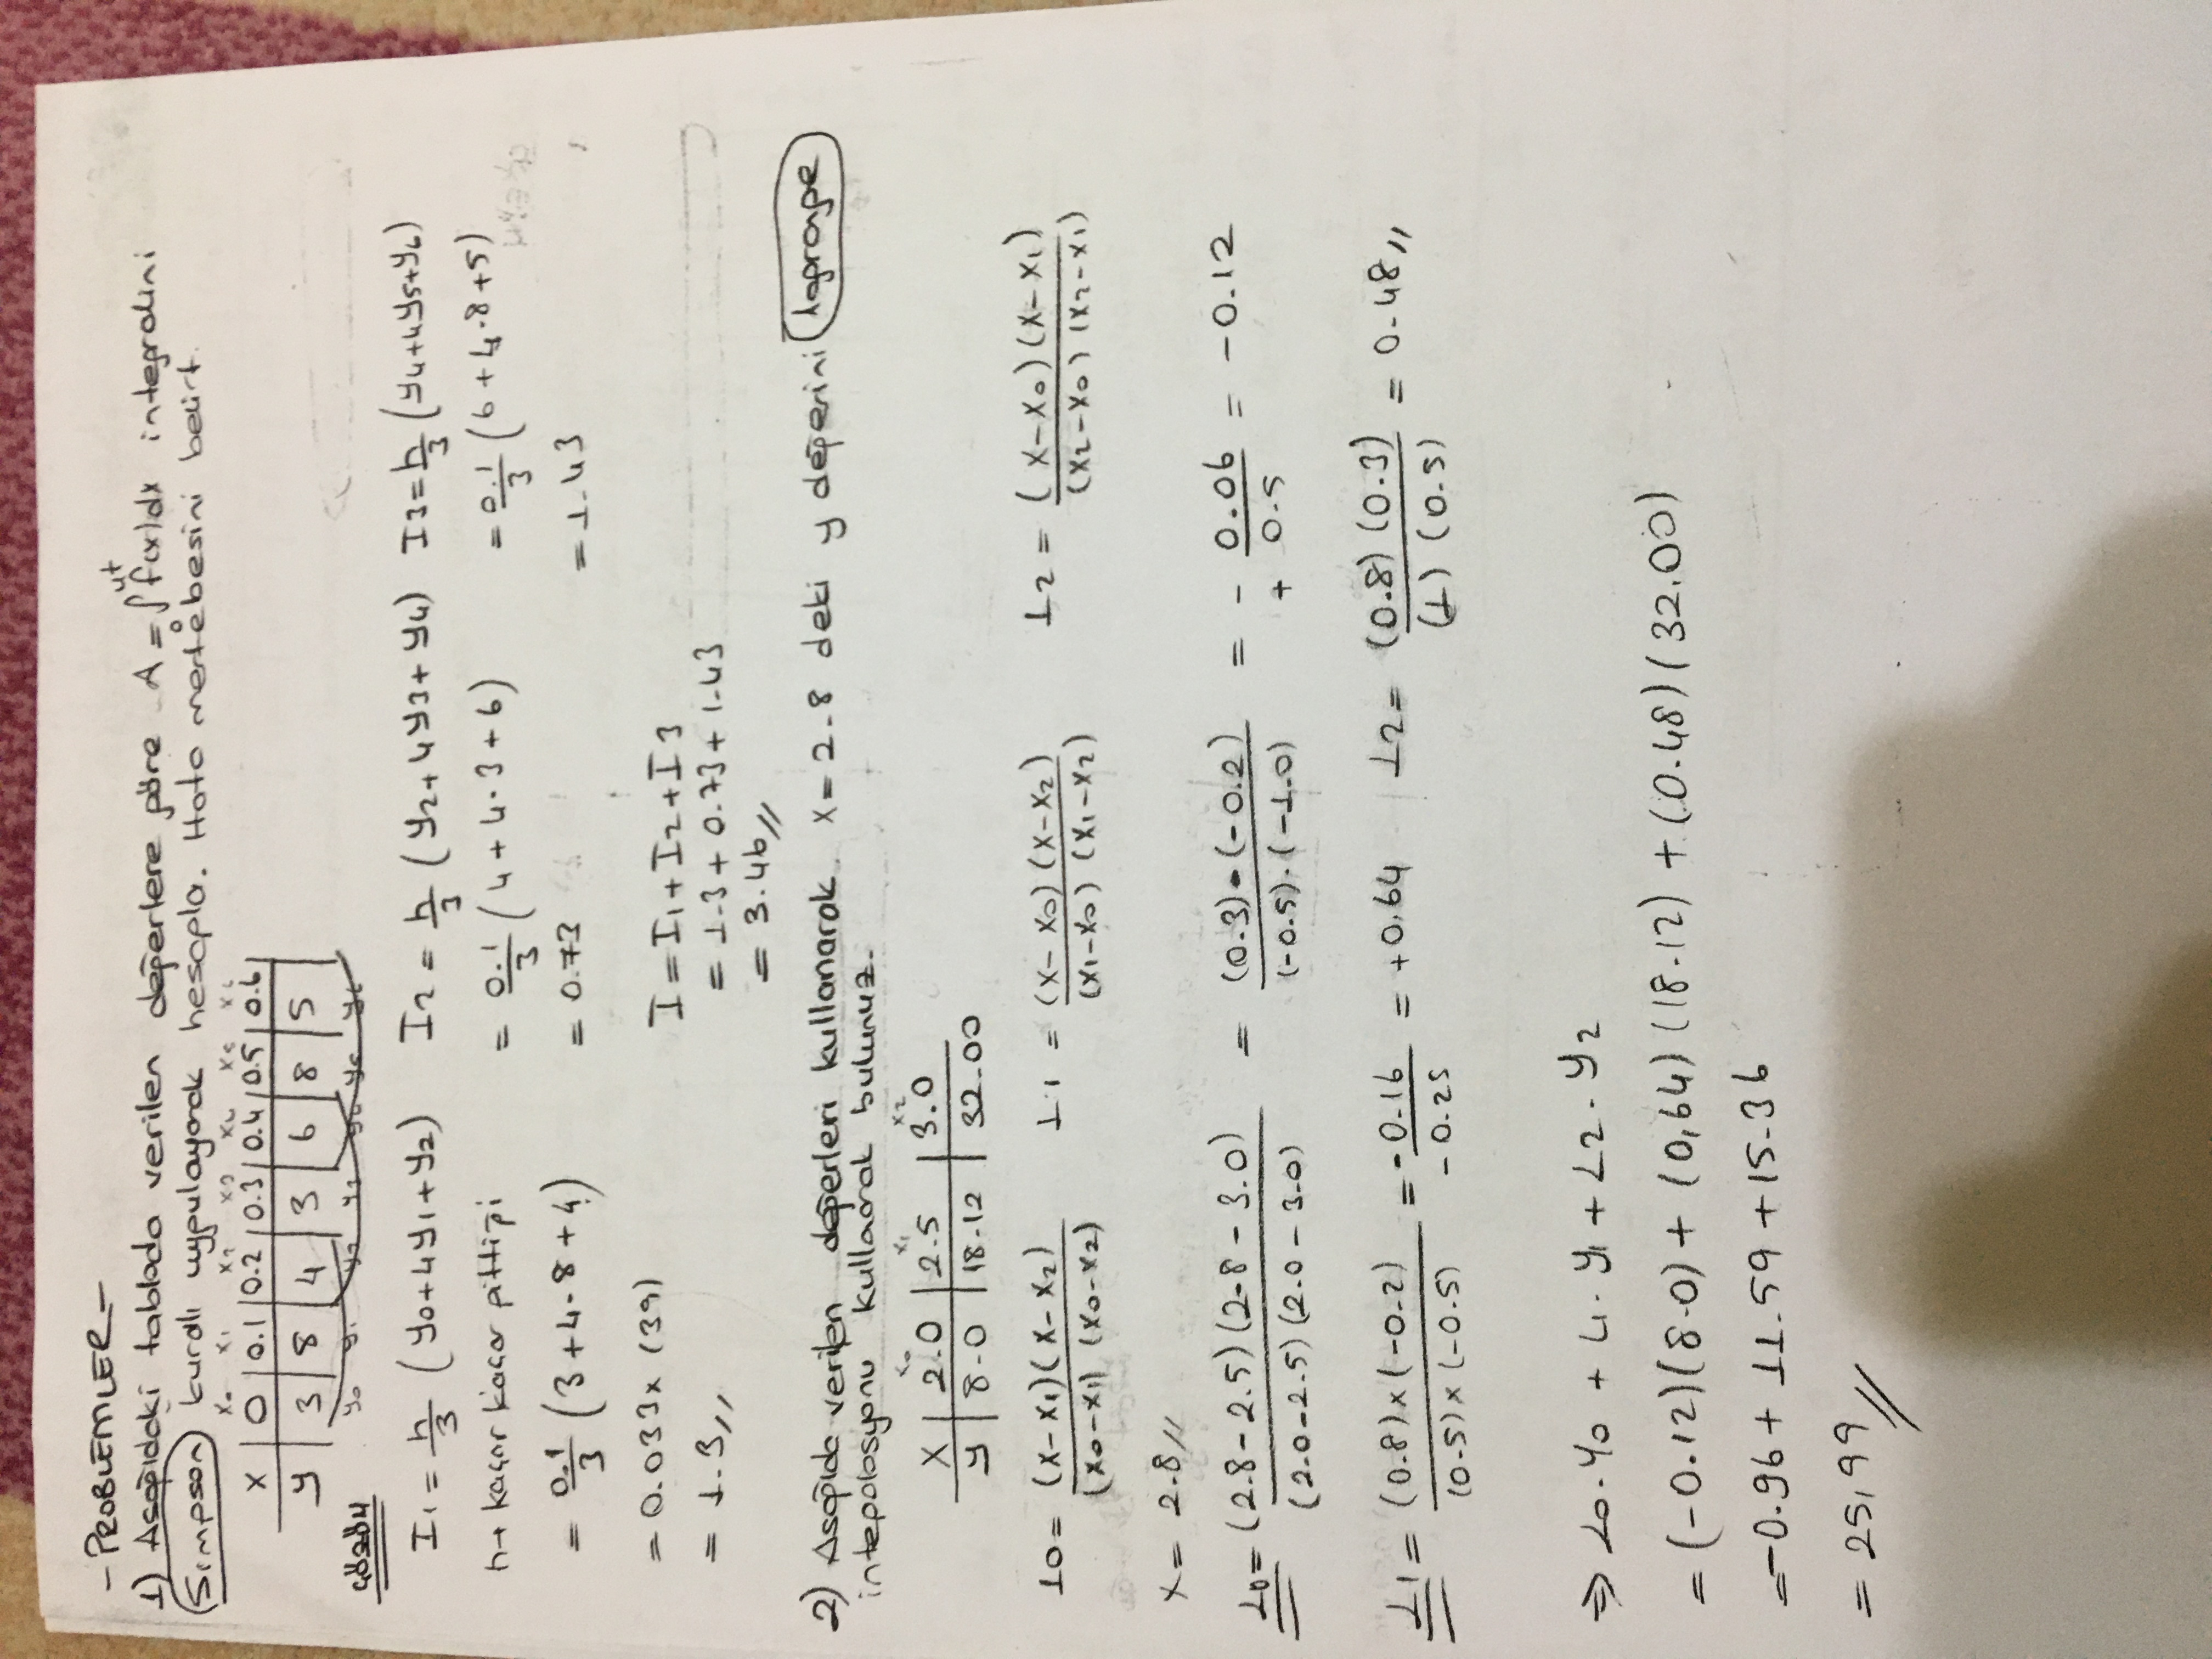 - PROBLEMLER -
1) Aşağıdaki tabloda verilen değerlere göre A = ∫ f(x)dx integralini
Simpson kuralı uygulayarak hesapla. Hata mertebesini belirt.
x₀ x₁ x₂ x₃ x₄ x₅ x₆
x | 0 | 0.1 | 0.2 | 0.3 | 0.4 | 0.5 | 0.6 |
y | 3 | 8 | 4 | 3 | 6 | 8 | 5
y₀ y₁ y₂ y₃ y₄ y₅ y₆
ÇÖZÜM
I₁ = h/3 (y₀+4y₁+y₂) I₂ = h/3 (y₂+4y₃+y₄) I3 = h/3 (y₄+4y₅+y₆)
h→ kaçar kaçar gittiği = 0.1/3 (4+4·3+6) = 0.1/3 (6+4·8+5)
= 0.1/3 (3+4·8+4) = 0.73 = 1.43
= 0.033x (39) I = I₁+I₂+I3
= 1.3,, = 1.3+0.73+1.43
= 3.46//
2) Aşağıda verilen değerleri kullanarak. x = 2.8 deki y değerini lagrange
intepolasyonu kullaarak bulunuz.
x₀ x₁ x₂
x | 2.0 | 2.5 | 3.0
y | 8.0 | 18.12 | 32.00
L0 = (x-x₁)(x-x₂)/(x₀-x₁)(x₀-x₂) L₁ = (x-x₀)(x-x₂)/(x₁-x₀)(x₁-x₂) L2 = (x-x₀)(x-x₁)/(x₂-x₀)(x₂-x₁)
x = 2.8//
L₀ = (2.8-2.5)(2.8-3.0)/(2.0-2.5)(2.0-3.0) = (0.3)·(-0.2)/(-0.5)·(-1.0) = - 0.06/+ 0.5 = -0.12
L₁ = (0.8)x(-0.2)/(0.5)x(-0.5) = -0.16/-0.25 = +0.64 L2 = (0.8)(0.3)/(1)(0.5) = 0.48,,
⇒ L₀·y₀ + L₁·y₁ + L2·y₂
= (-0.12)(8.0) + (0,64)(18.12) + (0.48)(32.00)
= -0.96 + 11.59 + 15.36
= 25,99//